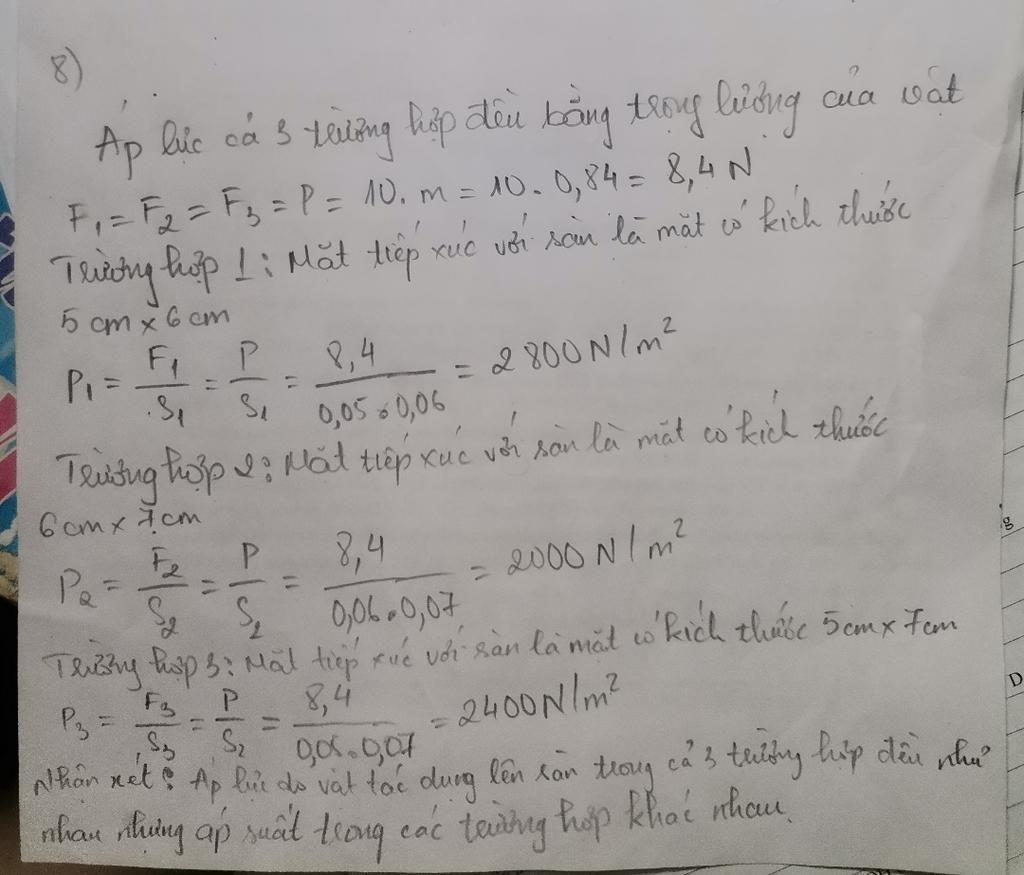 8)
Áp lực cả 3 trường hợp đều bằng trọng lượng của vật
F₁ = F₂ = F₃ = P = 10. m = 10. 0,84 = 8,4 N
Trường hợp 1: Mặt tiếp xúc với sàn là mặt có kích thước
5 cm x 6 cm
P₁ = F₁/S₁ = P/S₁ = 8,4/0,05.0,06 = 2800 N/m²
Trường hợp 2: Mặt tiếp xúc với sàn là mặt có kích thước
6 cm x 7 cm
P₂ = F₂/S₂ = P/S₂ = 8,4/0,06.0,07 = 2000 N/m²
Trường hợp 3: Mặt tiếp xúc với sàn là mặt có kích thước 5 cm x 7 cm
P₃ = F₃/S₃ = P/S₂ = 8,4/0,05.0,07 = 2400 N/m²
Nhận xét: Áp lực do vật tác dụng lên sàn trong cả 3 trường hợp đều như
nhau nhưng áp suất trong các trường hợp khác nhau.
g
D